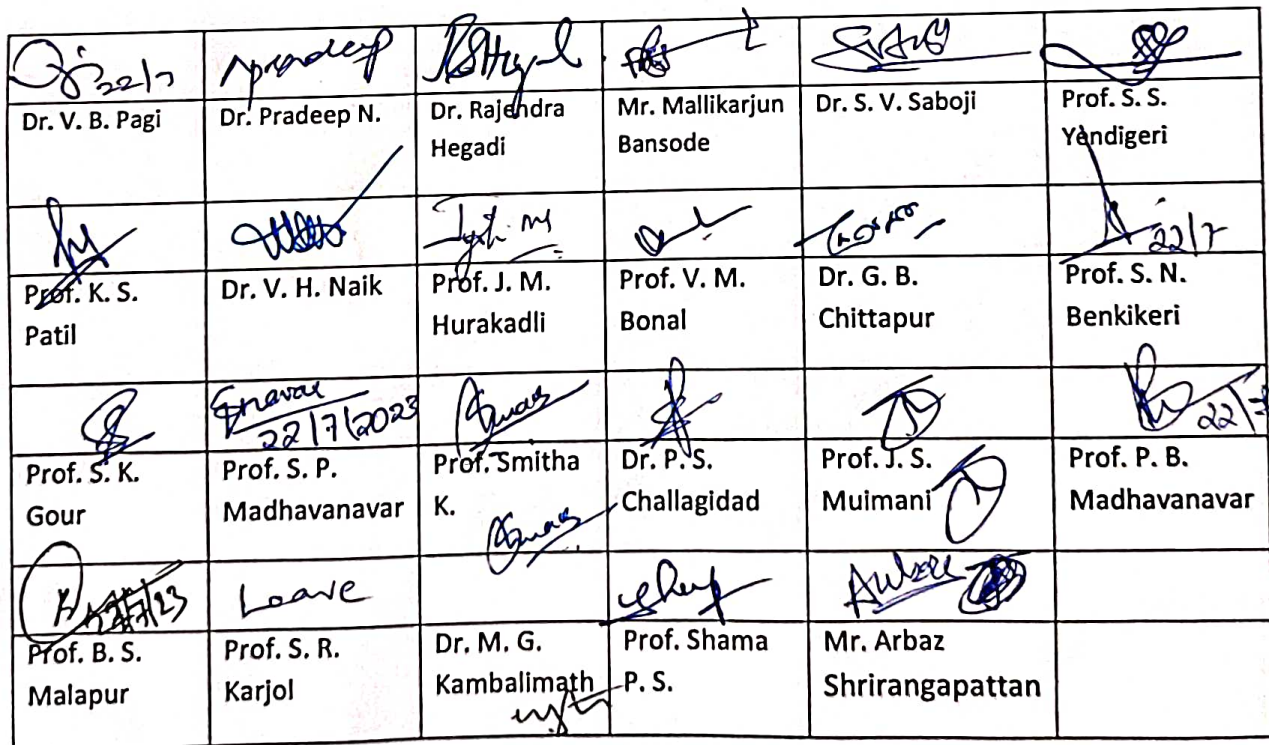 22/7
Pradeep
Dr. V. B. Pagi
Dr. Pradeep N.
Dr. Rajendra
Hegadi
Mr. Mallikarjun
Bansode
Dr. S. V. Saboji
Prof. S. S.
Yendigeri
22/7
Prof. K. S.
Patil
Dr. V. H. Naik
Prof. J. M.
Hurakadli
Prof. V. M.
Bonal
Dr. G. B.
Chittapur
Prof. S. N.
Benkikeri
22/7/2023
22/7
Prof. S. K.
Gour
Prof. S. P.
Madhavanavar
Prof. Smitha
K.
Dr. P. S.
Challagidad
Prof. J. S.
Muimani
Prof. P. B.
Madhavanavar
Leave
Prof. B. S.
Malapur
Prof. S. R.
Karjol
Dr. M. G.
Kambalimath
Prof. Shama
P. S.
Mr. Arbaz
Shrirangapattan